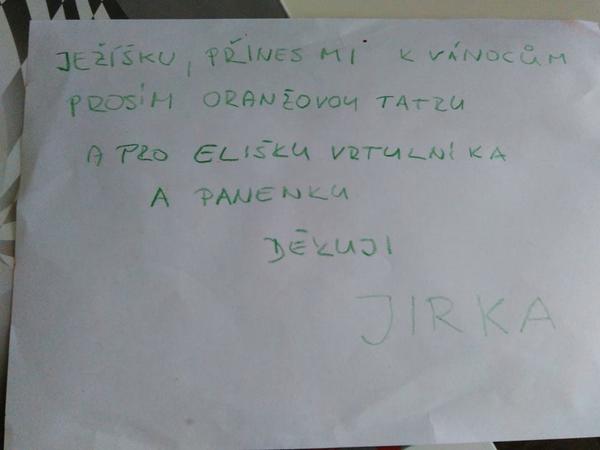 JEŽÍŠKU, PŘINES MI K VÁNOCŮM
PROSÍM ORANŽOVOU TATRU
A PRO ELIŠKU VRTULNÍKA
A PANENKU
DĚKUJI
JIRKA